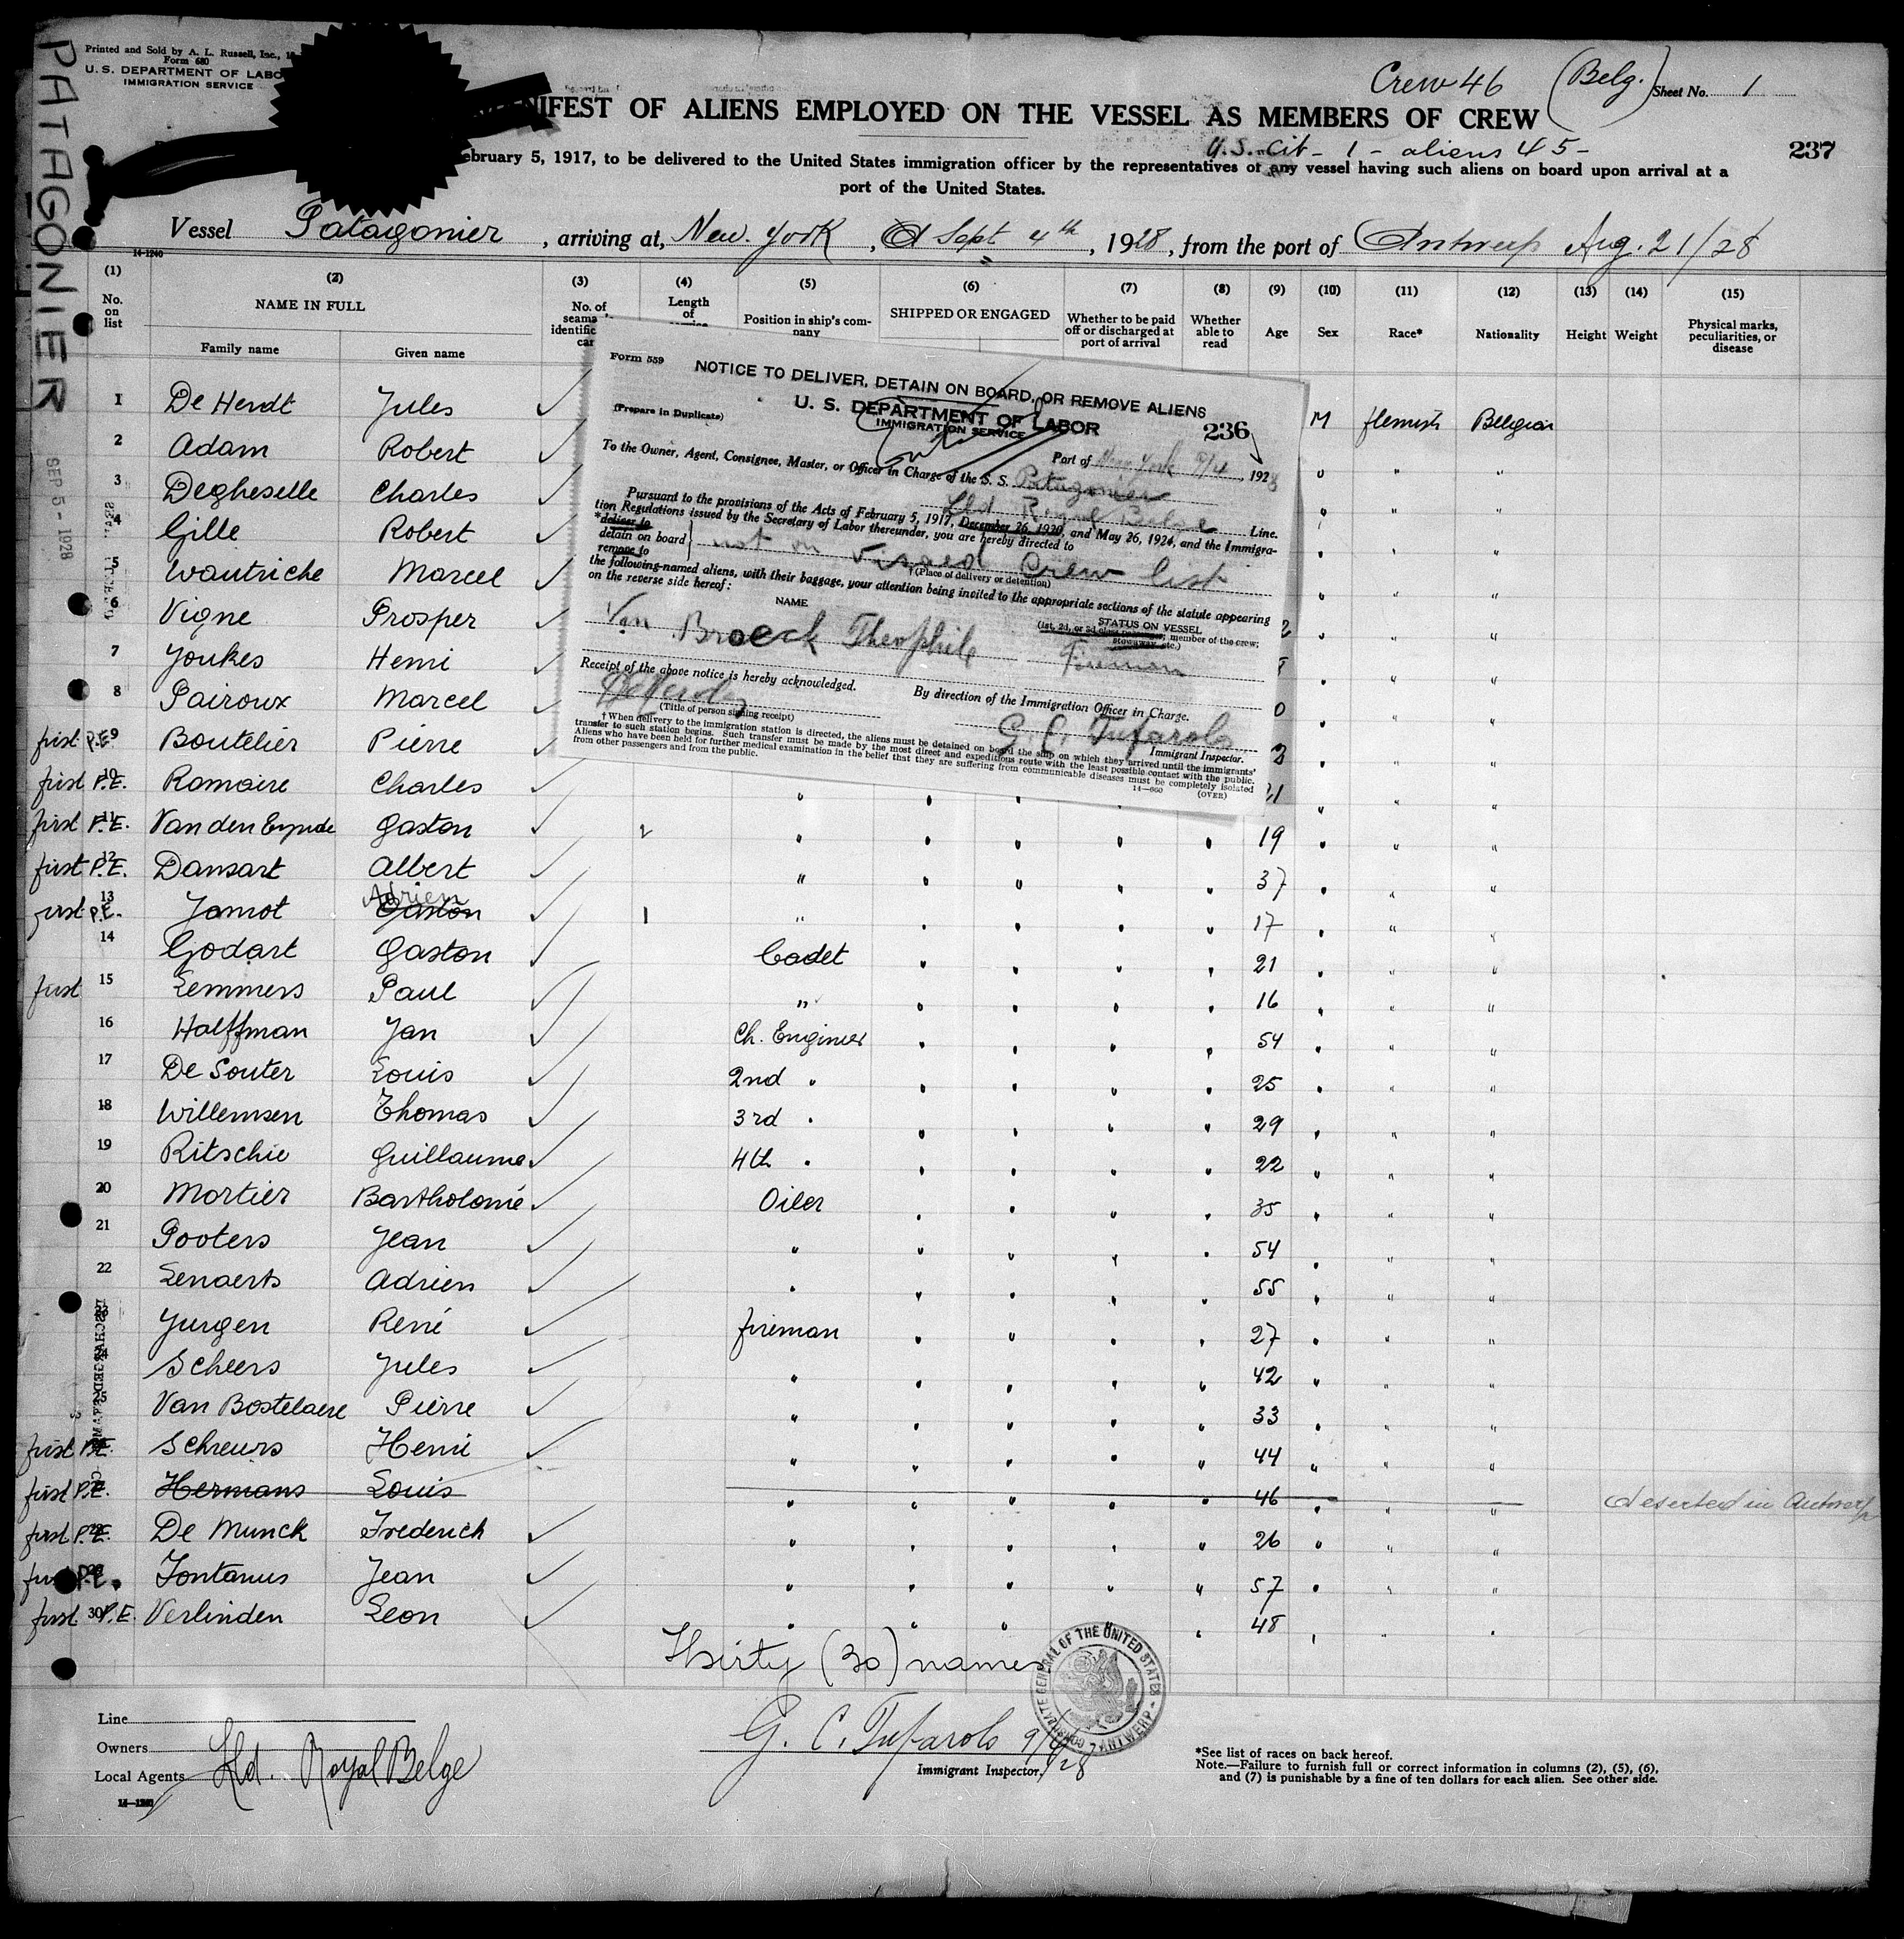 PATAGONIER
Printed and Sold by A. L. Russell, Inc.,
Form 680
U. S. DEPARTMENT OF LABO
IMMIGRATION SERVICE
Crew 46 (Belg.) Sheet No. 1
NIFEST OF ALIENS EMPLOYED ON THE VESSEL AS MEMBERS OF CREW
U.S. Cit - 1 - aliens 45 -
237
ebruary 5, 1917, to be delivered to the United States immigration officer by the representatives of any vessel having such aliens on board upon arrival at a
port of the United States.
Vessel Patagonier, arriving at, New. York, Sept 4th, 1928, from the port of Antwerp Aug. 21/28
14-1240
(1) (2) (3) (4) (5) (6) (7) (8) (9) (10) (11) (12) (13) (14) (15)
No. on list
NAME IN FULL
Family name Given name
No. of
seama
identific
car
Length of
Position in ship's company
SHIPPED OR ENGAGED
Whether to be paid off or discharged at port of arrival
Whether able to read
Age Sex Race* Nationality Height Weight
Physical marks, peculiarities, or disease
SEP 5 - 1928
1 De Herdt Jules M flemish Belgian
2 Adam Robert " " "
3 Degheselle Charles " " "
4 Gille Robert " " "
5 Wautriche Marcel " " "
6 Vigne Prosper 2 " " "
7 Youkes Henri " " "
8 Pairoux Marcel 0 " " "
first P.E. 9 Boutelier Pierre " " "
first P.E. 10 Romaire Charles " " " 21 " " "
first P.E. 11 Van den Eynde Gaston 2 " " " " " 19 " " "
first P.E. 12 Dansart Albert " " " " " 37 " " "
first P.E. 13 Jamot Gaston Adrien 1 " " " " " 17 " " "
14 Godart Gaston Cadet " " " " 21 " " "
first 15 Lemmers Paul " " " " " 16 " " "
16 Halffman Jan Ch. Engineer " " " " 54 " " "
17 De Souter Louis 2nd " " " " " 25 " " "
18 Willemsen Thomas 3rd " " " " " 29 " " "
19 Ritschie Guillaume 4th " " " " " 22 " " "
20 Mortier Bartholomé Oiler " " " " 35 " " "
21 Pooters Jean " " " " " 54 " " "
22 Lenaerts Adrien " " " " " 55 " " "
23 Jurgen René fireman " " " " 27 " " "
24 Scheers Jules " " " " " 42 " " "
25 Van Bostelaere Pierre " " " " " 33 " " "
first P.E. Schreurs Henri " " " " " 44 " " "
first P.E. Hermans Louis " " " " " 46 " " " deserted in Antwerp
first P.E. De Munck Frederich " " " " " 26 " " "
first P.E. Fontanus Jean " " " " " 57 " " "
first 30 P.E. Verlinden Leon " " " " " 48 " " "
Thirty (30) names
CONSULATE GENERAL OF THE UNITED STATES - ANTWERP -
Form 559
NOTICE TO DELIVER, DETAIN ON BOARD, OR REMOVE ALIENS
(Prepare in Duplicate)
U. S. DEPARTMENT OF LABOR
IMMIGRATION SERVICE
236
Port of New York 9/4, 1928
To the Owner, Agent, Consignee, Master, or Officer in Charge of the S. S. Patagonier
Lld Royal Belge Line.
Pursuant to the provisions of the Acts of February 5, 1917, December 26, 1920, and May 26, 1924, and the Immigra-
tion Regulations issued by the Secretary of Labor thereunder, you are hereby directed to
*deliver to
detain on board
remove to
not on visaed Crew list
†(Place of delivery or detention)
the following-named aliens, with their baggage, your attention being invited to the appropriate sections of the statute appearing
on the reverse side hereof:
NAME
STATUS ON VESSEL
(1st, 2d, or 3d class passenger; member of the crew;
stowaway, etc.)
Van Broeck Theophile Fireman
Receipt of the above notice is hereby acknowledged.
By direction of the Immigration Officer in Charge.
(Title of person signing receipt)
G. C. Tufarolo
Immigrant Inspector.
† When delivery to the immigration station is directed, the aliens must be detained on board the ship on which they arrived until the immigrants'
transfer to such station begins. Such transfer must be made by the most direct and expeditious route with the least possible contact with the public.
Aliens who have been held for further medical examination in the belief that they are suffering from communicable diseases must be completely isolated
from other passengers and from the public.
14-660 (OVER)
Line
Owners
Local Agents Lld. Royal Belge
14-1240
G. C. Tufarolo 9/4/28
Immigrant Inspector.
*See list of races on back hereof.
Note.—Failure to furnish full or correct information in columns (2), (5), (6),
and (7) is punishable by a fine of ten dollars for each alien. See other side.